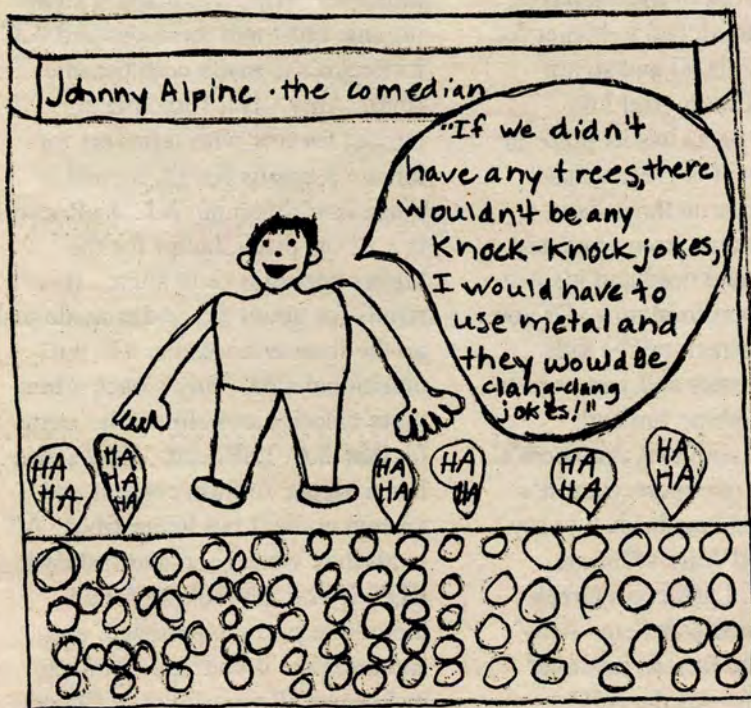 Johnny Alpine · the comedian
"If we didn't
have any trees, there
wouldn't be any
Knock-Knock jokes,
I would have to
use metal and
they would be
clang-clang
jokes!"
HA
HA
HA
HA
HA
HA
HA
HA
HA
HA
HA
HA
HA